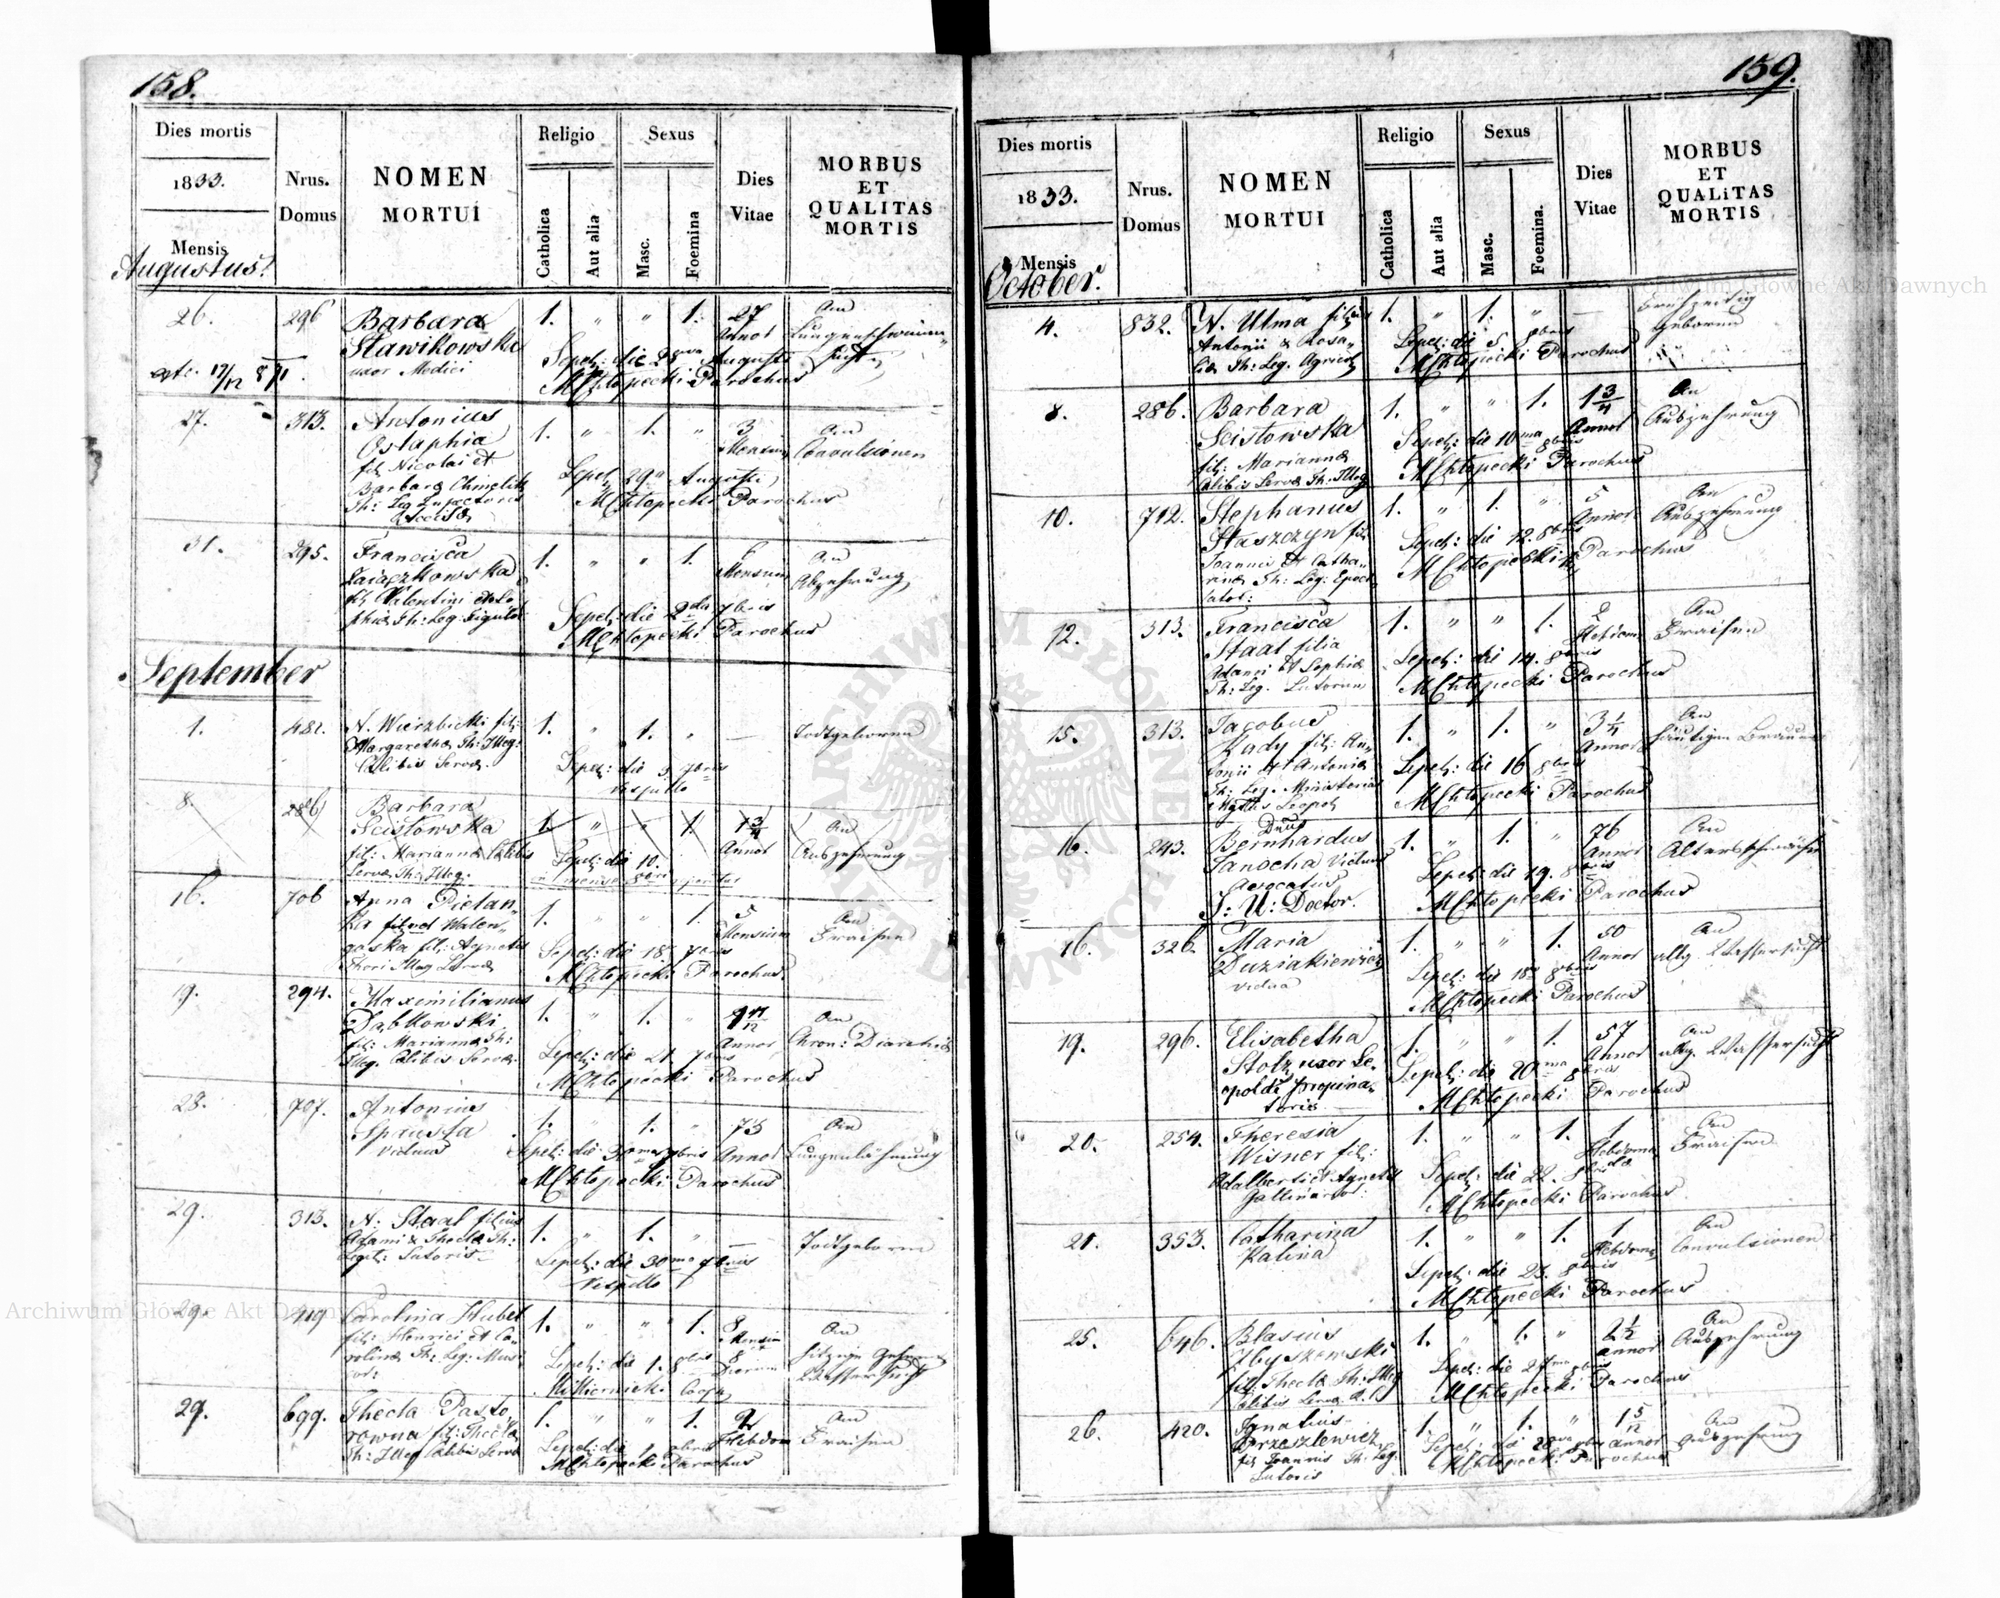 158.
Dies mortis
1833.
Mensis
Augustus.
Nrus.
Domus
NOMEN
MORTUI
Religio
Catholica
Aut alia
Sexus
Masc.
Foemina
Dies
Vitae
MORBUS
ET
QUALITAS
MORTIS
26.
296
Barbara
Sławikowska
uxor Medici
1. " " 1.
27
Annor
An
Sepel: die 28 Augusti
MChłopecki Parochus
27.
313.
Antonius
Ostaphia
fil Nicolai et
Barbara
1. " 1. "
3
Mensium
An
Convulsionen
Sepel 29 Augusti
MChłopecki Parochus
31.
295.
Francisca
fil Valentini
Th: Leg:
1. " " 1.
Mensium
An
Abzehrung
Sepel: die 2da 7bris
MChłopecki Parochus
September
1.
482.
N. Wierzbicki fil:
Margaretha Th: Illeg:
Calibis Servae.
1. " 1. "
Todtgeboren
Sepel: die 3 7bris
Vespillo
8
286
Barbara
Scisłowska
fil: Marianna Calibis
Servae Th: Illeg.
1. " " 1.
1 3/4
Annor
An
Auszehrung
Sepel: die 10.
16.
706
Anna Pietan
ka
fil: Agnetis
Thori Illeg Servae
1. " " 1.
5
Mensium
An
Fraisen
Sepel: die 18 7bris
MChłopecki Parochus
19.
294.
Maximilianus
Dąbkowski
fil: Marianna Th:
Illeg. Calibis Servae.
1. " 1. "
Annor
An
Chron: Diarrhöe
Sepel: die 21 7bris
MChłopecki Parochus
28.
707.
Antonius
Sprusta
Viduus
1. " 1. "
73
Annor
An
Lungenlähmung
Sepel: die 30ma 7bris
MChłopecki Parochus
29.
313.
N. Staal filius
Adami & Thecla Th:
Legit: Sutoris
1. " 1. "
Todtgeboren
Sepel: die 30ma 7bris
Vespillo
29.
419
Carolina Hubel
fil: Henrici et Ca-
rolina Th: Leg:
1. " " 1.
8
Mensium
8
Dierum
An
Wassersucht
Sepel: die 1. 8bris
29.
699.
Thecla Pasto
rowna fil: Thecla
Th: Illeg Calibis Servae
1. " " 1.
2
Hebdom
An
Fraisen
Sepel: die 1 8bris
MChłopecki Parochus
159.
Dies mortis
1833.
Mensis
October.
Nrus.
Domus
NOMEN
MORTUI
Religio
Catholica
Aut alia
Sexus
Masc.
Foemina.
Dies
Vitae
MORBUS
ET
QUALITAS
MORTIS
4.
832.
N. Ulma filius
Antonii & Rosa-
lia Th: Leg. Agricol
1. " 1. "
Frühzeitig
geboren
Sepel: die 5 8bris
MChłopecki Parochus
8.
286.
Barbara
Scisłowska
fil: Marianna
Calibis Servae Th: Illeg
1. " " 1.
1 3/4
Annor
An
Auszehrung
Sepel: die 10ma 8bris
MChłopecki Parochus
10.
712.
Stephanus
Staszczyn fil:
Joannis et Catha-
rina Th: Leg:
1. " 1. "
5
Annor
An
Auszehrung
Sepel: die 12. 8bris
MChłopecki Parochus
12.
313.
Francisca
Staal filia
Adami et Sophia
Th: Leg. Sutorum
1. " " 1.
2
Hebdom
An
Fraisen
Sepel: die 14. 8bris
MChłopecki Parochus
15.
313.
Jacobus
Kady fil: An-
tonii et Antonia
Th: Leg.
1. " 1. "
3 1/4
Annor
An
häutigen Bräune
Sepel: die 16 8bris
MChłopecki Parochus
16.
243.
Dnus
Bernhardus
Janocha Viduus
Advocatus
J: U: Doctor.
1. " 1. "
76
Annor
An
Altersschwäche
Sepel: die 19. 8bris
MChłopecki Parochus
16.
326.
Maria
Duziakiewicz
vidua
1. " " 1.
50
Annor
An
allg. Wassersucht
Sepel: die 18 8bris
MChłopecki Parochus
19.
296.
Elisabetha
Stolz uxor Le-
opoldi propina-
toris
1. " " 1.
57
Annor
An
allg. Wassersucht
Sepel: die 20ma 8bris
MChłopecki Parochus
20.
254.
Theresia
Wisner fil:
Adalberti et Agnetis
1. " " 1.
1
Hebdoma
An
Fraisen
Sepel: die 22 8bris
MChłopecki Parochus
21.
353.
Catharina
Kalina
1. " " 1.
1
Hebdoma
An
Convulsionen
Sepel: die 23. 8bris
MChłopecki Parochus
25.
646.
Blasius
Zbyszowski
fil: Thecla Th: Illeg
Calibis Servae
1. " 1. "
2 1/2
annor
An
Auszehrung
Sepel: die 27ma 8bris
MChłopecki Parochus
26.
420.
Ignatius
Brzeszlewicz
fil Joannis Th: Leg.
Sutoris
1. " 1. "
1 5/12
annor
An
Auszehrung
Sepel: die 28 8bris
MChłopecki Parochus
Archiwum Główne Akt Dawnych
Archiwum Główne Akt Dawnych
ARCHIWUM GŁÓWNE AKT DAWNYCH